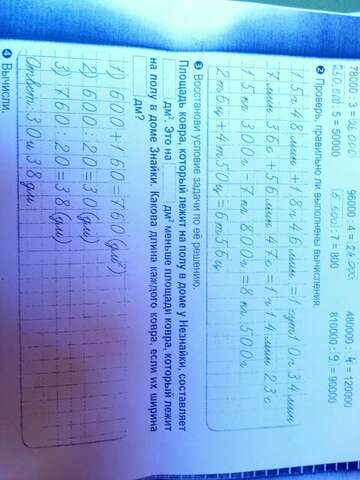 78000 : 3 = 96000 : 4 = 24000 480000 : 4 = 120000
250 000 : 5 = 50000 : 7 = 800 810000 : 9 = 90000
2 Проверь, правильно ли выполнены вычисления.
15 ч 48 мин + 18 ч 46 мин = 1 сут 10 ч 34 мин
7 мин 36 с + 56 мин 47 с = 1 ч 14 мин 23 с
15 кг 300 г - 7 кг 800 г = 8 кг 500 г
2 т 6 ц + 4 т 50 ц = 6 т 56 ц
3 Восстанови условие задачи по её решению.
Площадь ковра, который лежит на полу в доме у Незнайки, составляет
дм². Это на дм² меньше площади ковра, который лежит
на полу в доме Знайки. Какова длина каждого ковра, если их ширина
дм?
1) 600 + 160 = 760 (дм²)
2) 600 : 20 = 30 (дм)
3) 760 : 20 = 38 (дм)
Ответ: 30 и 38 дм
4 Вычисли.